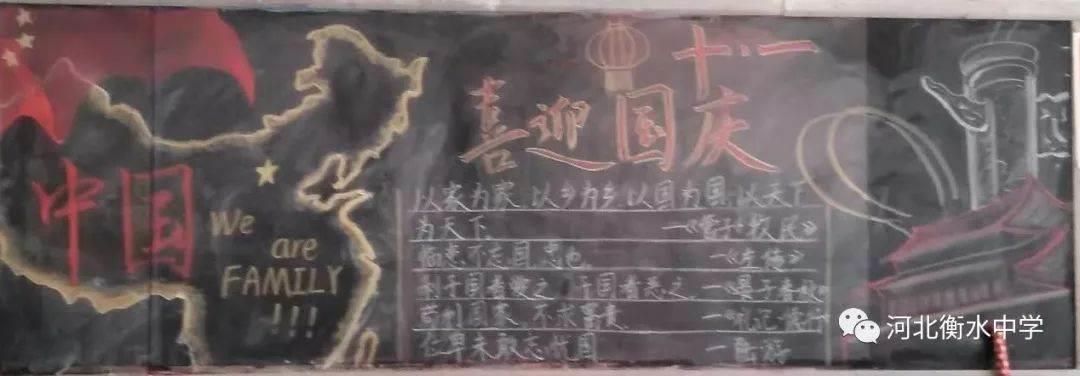 中国
We
are
FAMILY
!!!
十·一
喜迎国庆
以家为家,以乡为乡,以国为国,以天下
为天下 —《管子·牧民》
临患不忘国,忠也 —《左传》
利于国者爱之,于国者恶之 —《晏子春秋》
苟利国家,不求富贵 —《礼记·儒行》
位卑未敢忘忧国 —陆游
河北衡水中学